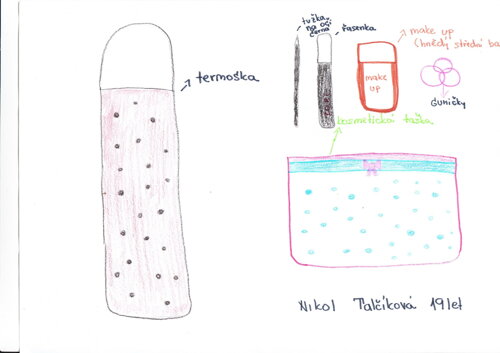 termoška
tužka
na oči
černá
řasenka
make up
(hnědý středa ba
make
up
Gumičky
kosmetická taška
Nikol Talčíková 19 let